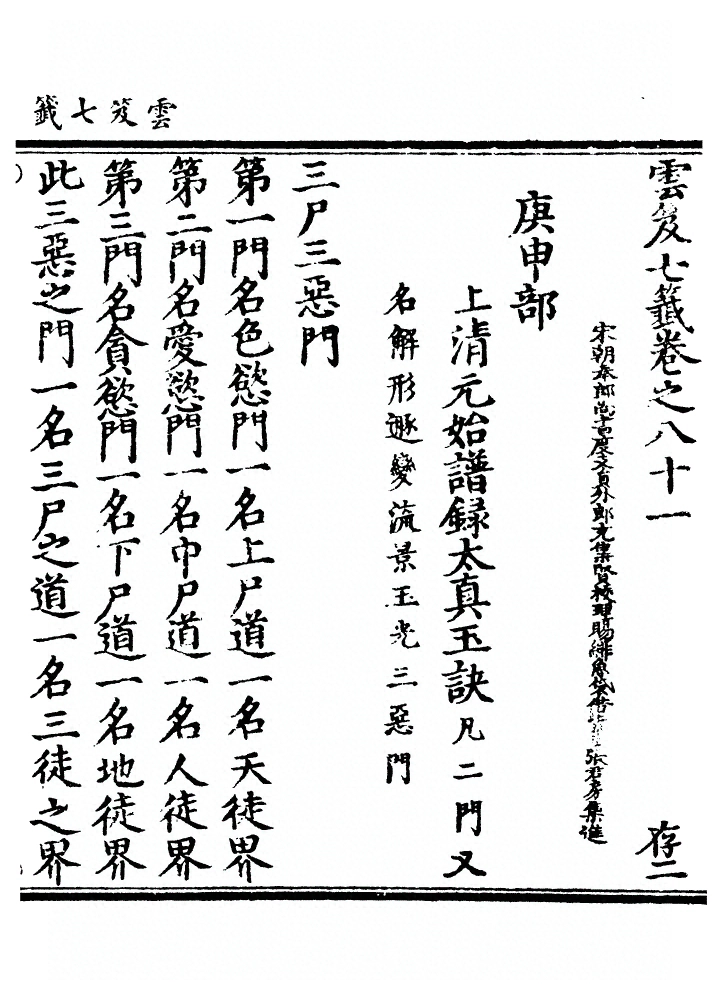 雲笈七籤
雲笈七籤卷之八十一 存二
宋朝奉郎尚書度支員外郎充集賢校理賜緋魚袋借紫 張君房集進
庚申部
上清元始譜録太真玉訣凡二門又
名解形遯變流景玉光三惡門
三尸三惡門
第一門名色慾門一名上尸道一名天徒界
第二門名愛慾門一名中尸道一名人徒界
第三門名貪慾門一名下尸道一名地徒界
此三惡之門一名三尸之道一名三徒之界